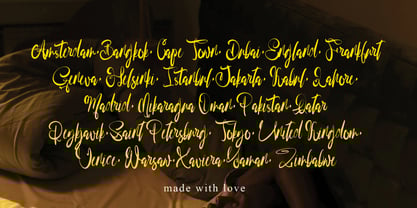 Amsterdam. Bangkok. Cape Town. Dubai. England. Frankfurt
Geneva. Helsinki. Istanbul. Jakarta. Kabul. Lahore.
Madrid. Nikaragua Oman. Pakistan. Qatar
Reykjavik. Saint Petersburg. Tokyo. United Kingdom.
Venice. Warsaw. Xaviera. Yaman. Zimbabwe
made with love